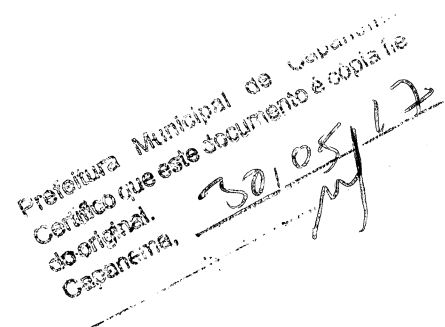 Prefeitura Municipal de Capanema
Certifico que este documento é cópia fie
do original.
Capanema, 30/05/17